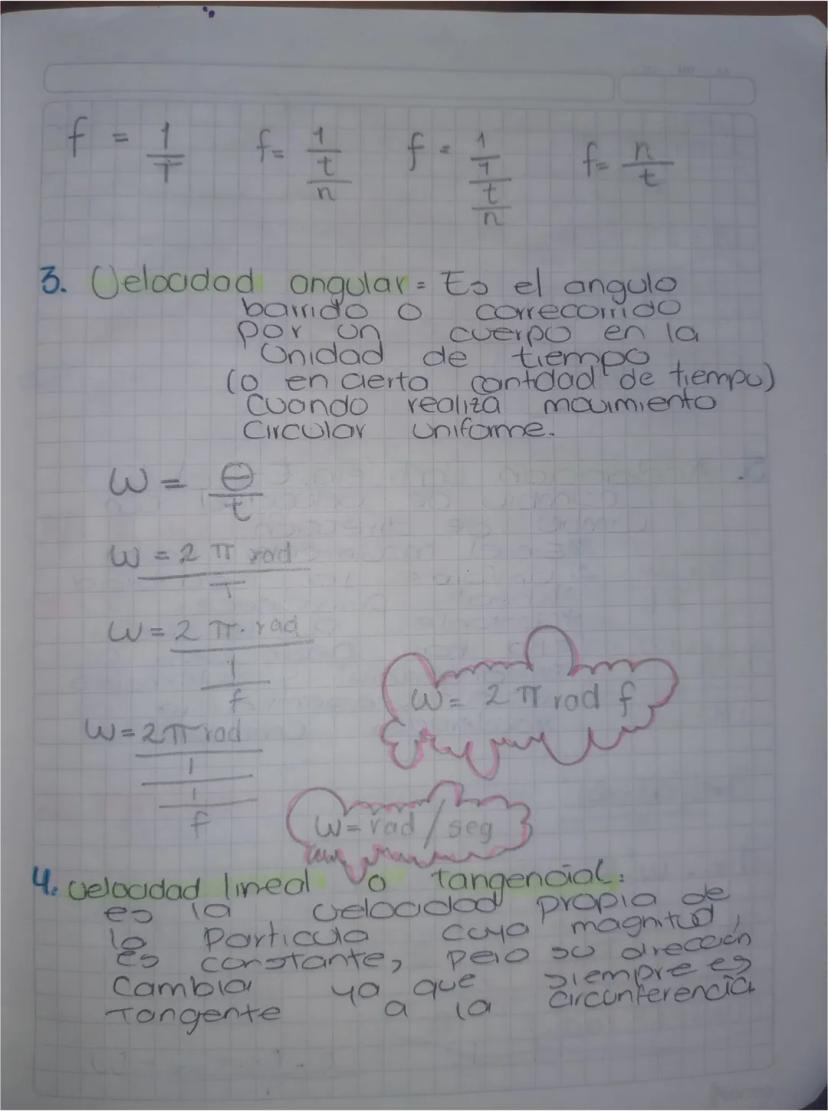 f = 1/T    f = 1/(t/n)    f = (1/1)/(t/n)    f = n/t
3. Velocidad angular = Es el angulo
barrido o correcorrido
por un cuerpo en la
Unidad de tiempo
(o en cierta cantdad de tiempo)
cuando realiza movimiento
circular uniforme.
ω = Θ/t
ω = 2 π rad / T
ω = 2 π · rad / (1/f)
ω = 2 π rad f
ω = 2 π rad / 1 / (1/f)
ω = rad / seg
4. velocidad lineal o tangencial:
es la velocidad propia de
la Particula cuya magnitud,
es constante, pero su dirección
Cambia ya que siempre es
Tangente a la circunferencia